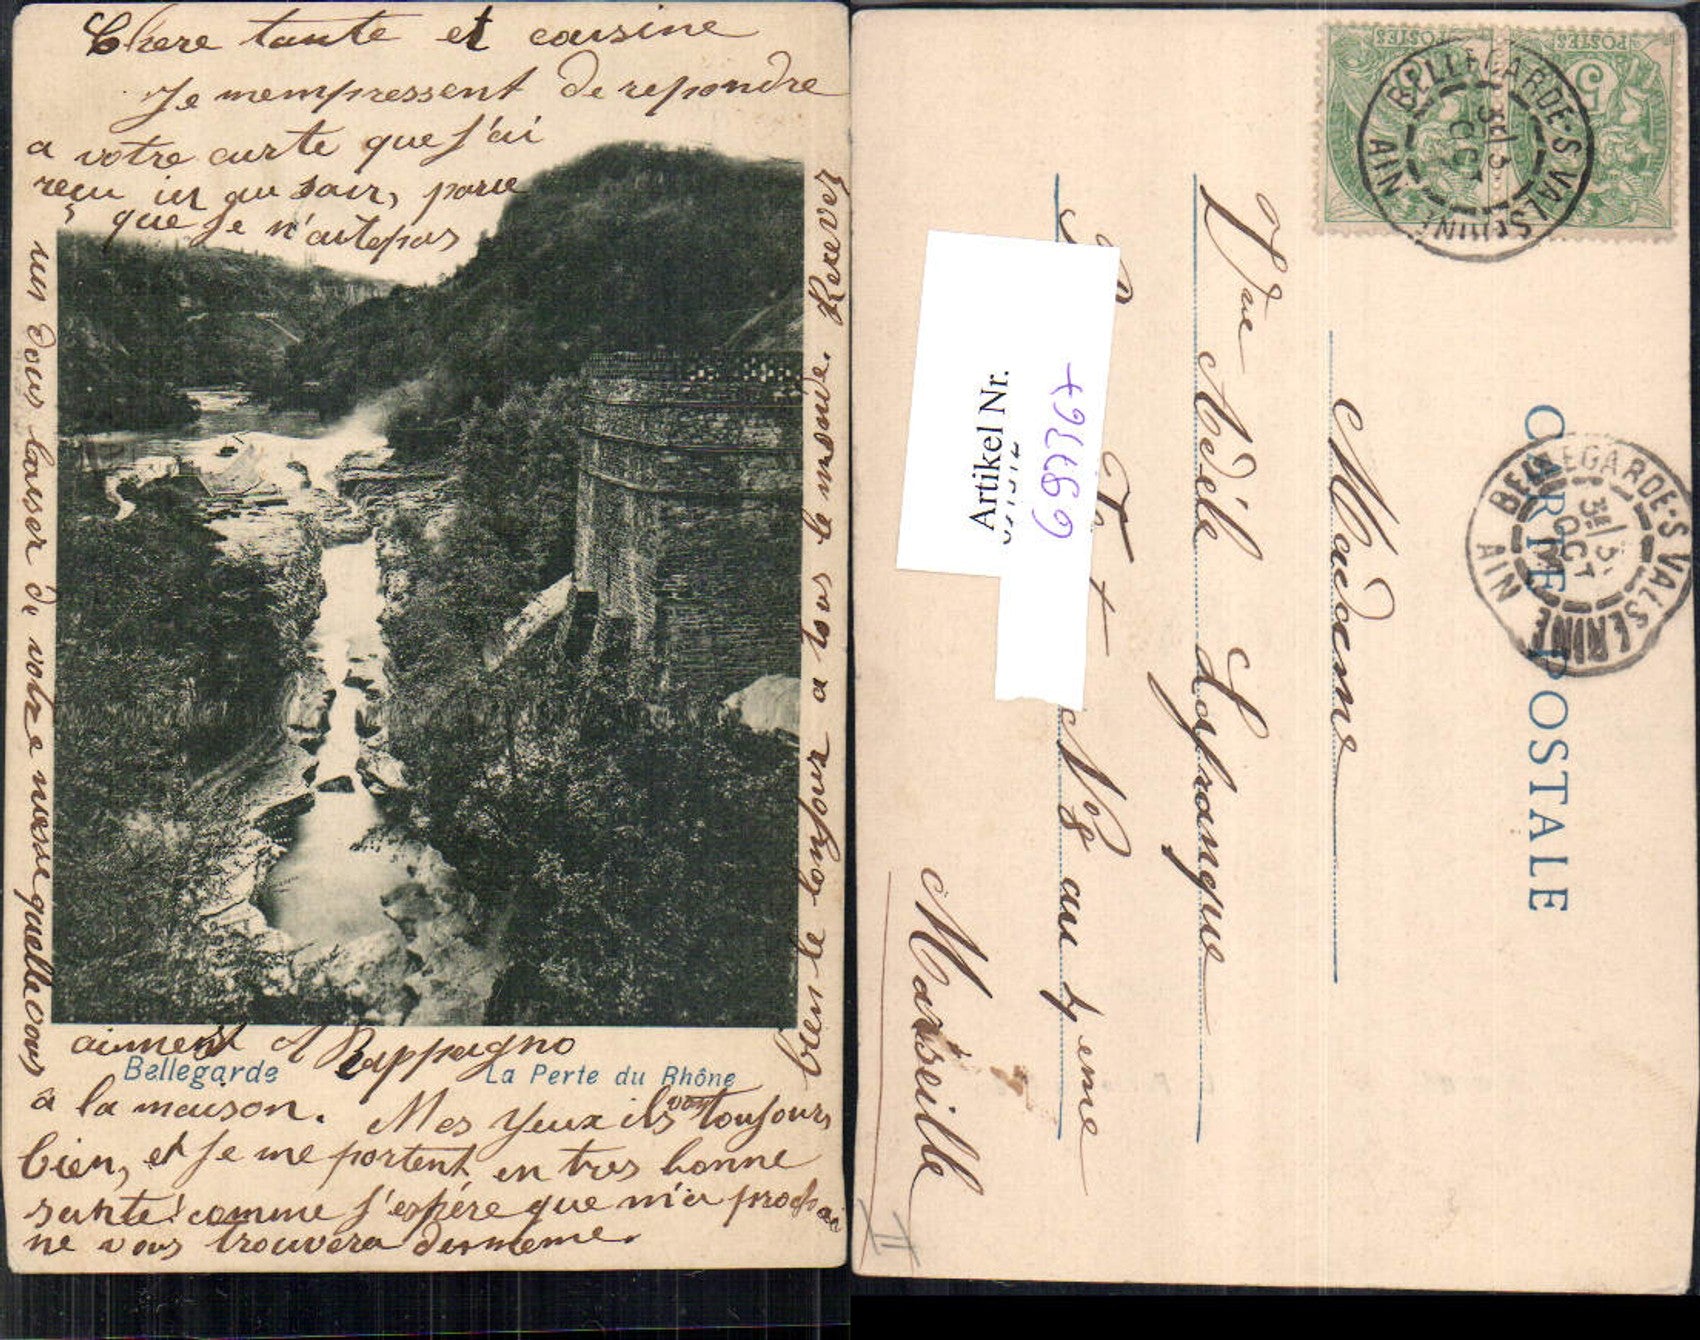 Chere tante et cousine
Je mempressent de repondre
a votre carte que j'ai
reçu ier au soir, parce
que je n'aitepas
aiment A Rappagno
Bellegarde La Perte du Rhône
a la maison. Mes yeux ils vont toujours
bien, et je me portent en tres bonne
sante! comme j'espére que m'a prochai
ne vous trouvera de meme.
bien le bonjour a tous le monde. Recevez
un doux baiser de votre niesse quelle vous
CARTE POSTALE
POSTES
POSTES
5
BELLEGARDE-S-VALSERINE
AIN
3E 3
OCT
BELLEGARDE-S-VALSERINE
AIN
3E 3
OCT
Madame
Vve Adéle Lafranque
N 8 au 4 eme
Marseille
Artikel Nr.
698767
II